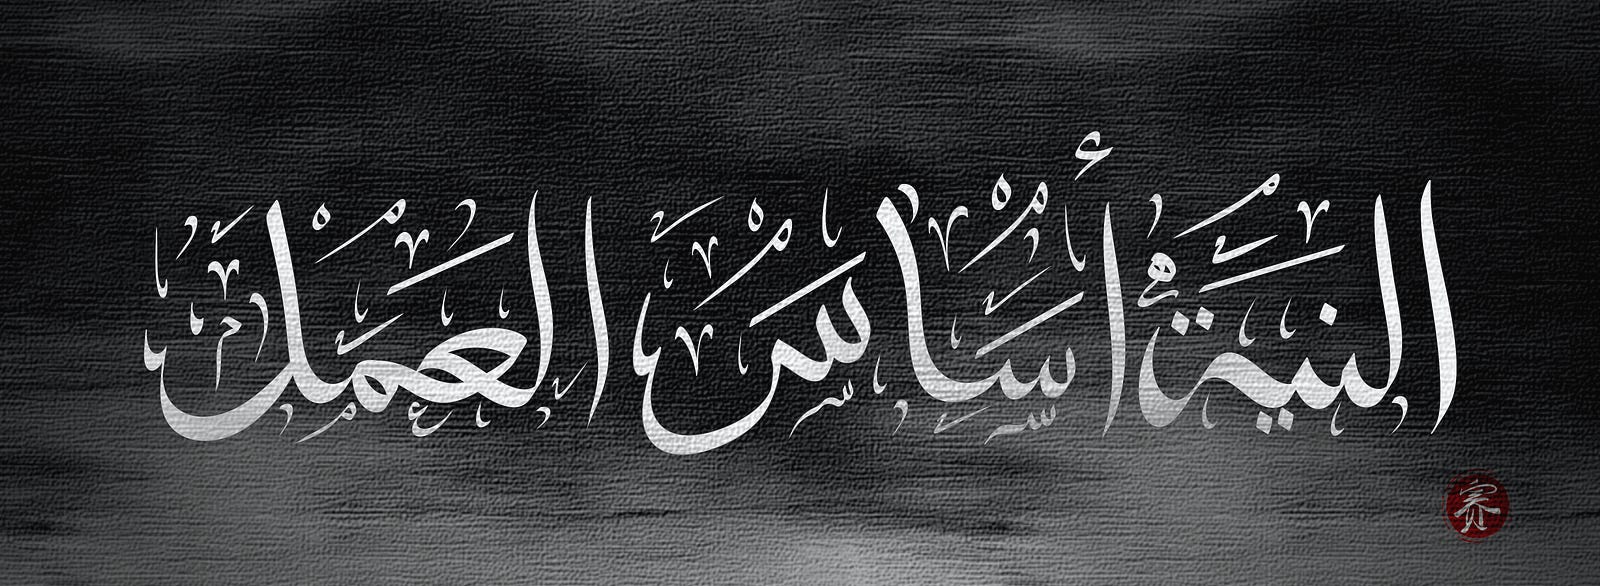 النية أساس العمل
赛